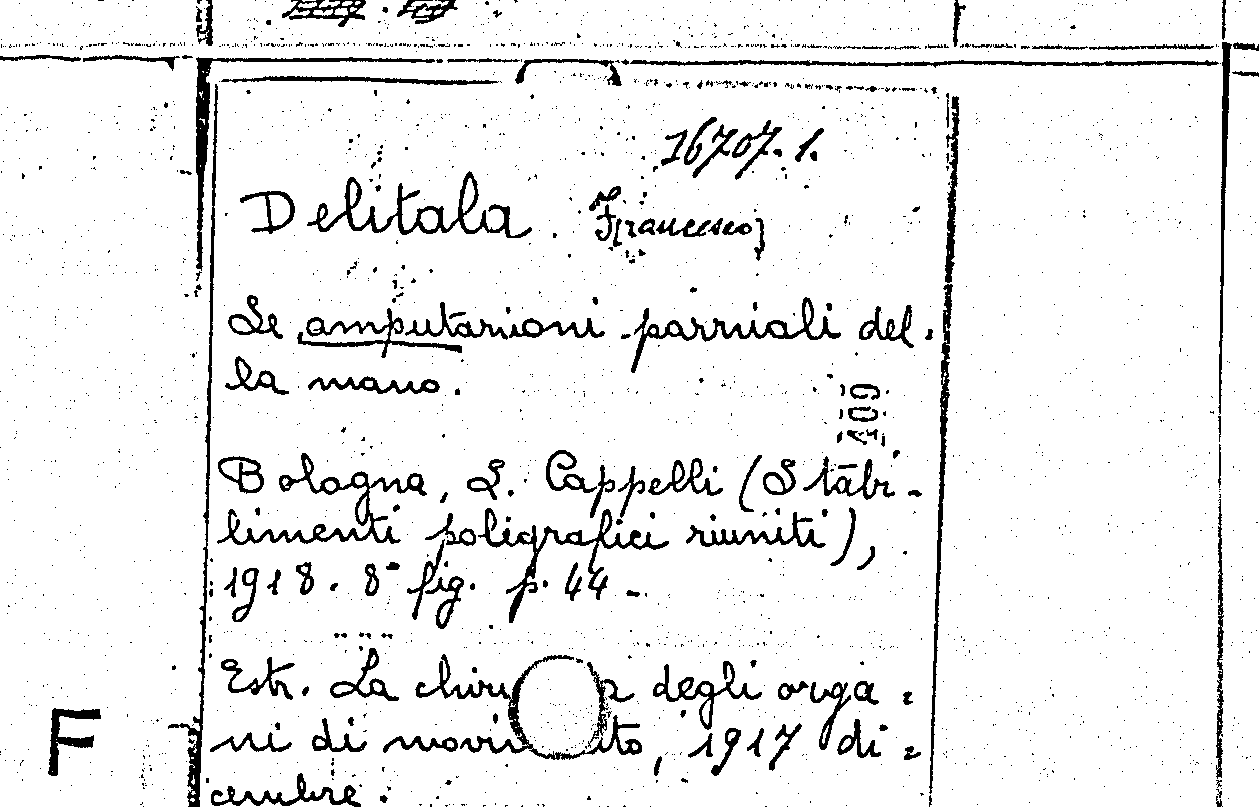 16707.1.
Delitala. F[rancesco]
Le amputazioni parziali del=
la mano.
109
Bologna, L. Cappelli (Stabi-
limenti poligrafici riuniti),
1918. 8° fig. p. 44 -
Estr. La degli orga=
ni di , 1917 di=
cembre.
F